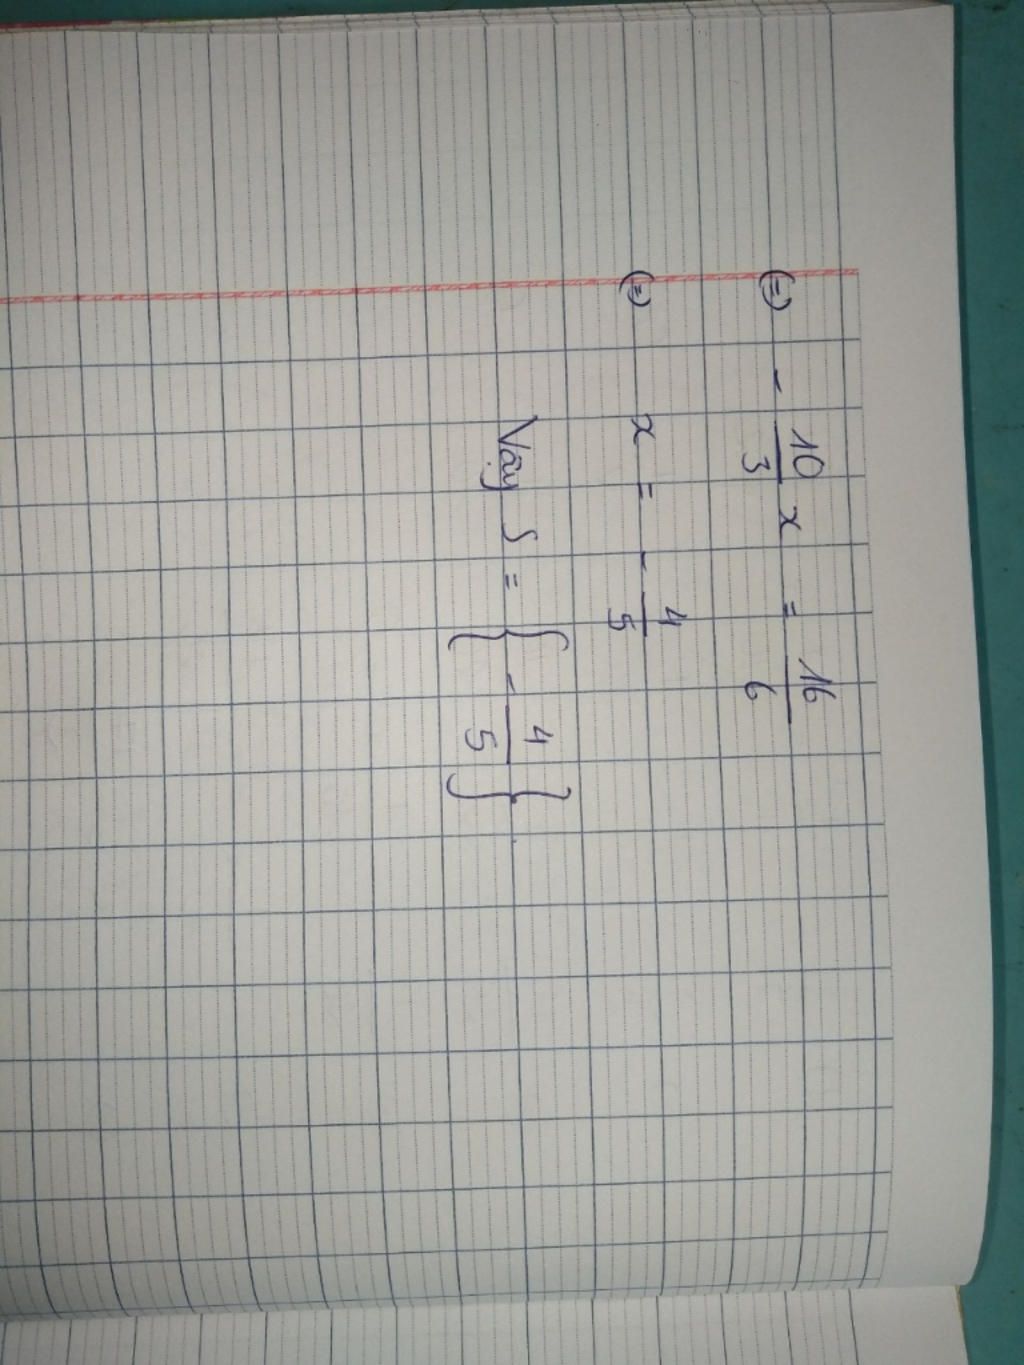 (=) - 10/3 x = 16/6
(=) x = - 4/5
Vậy S = { - 4/5 }